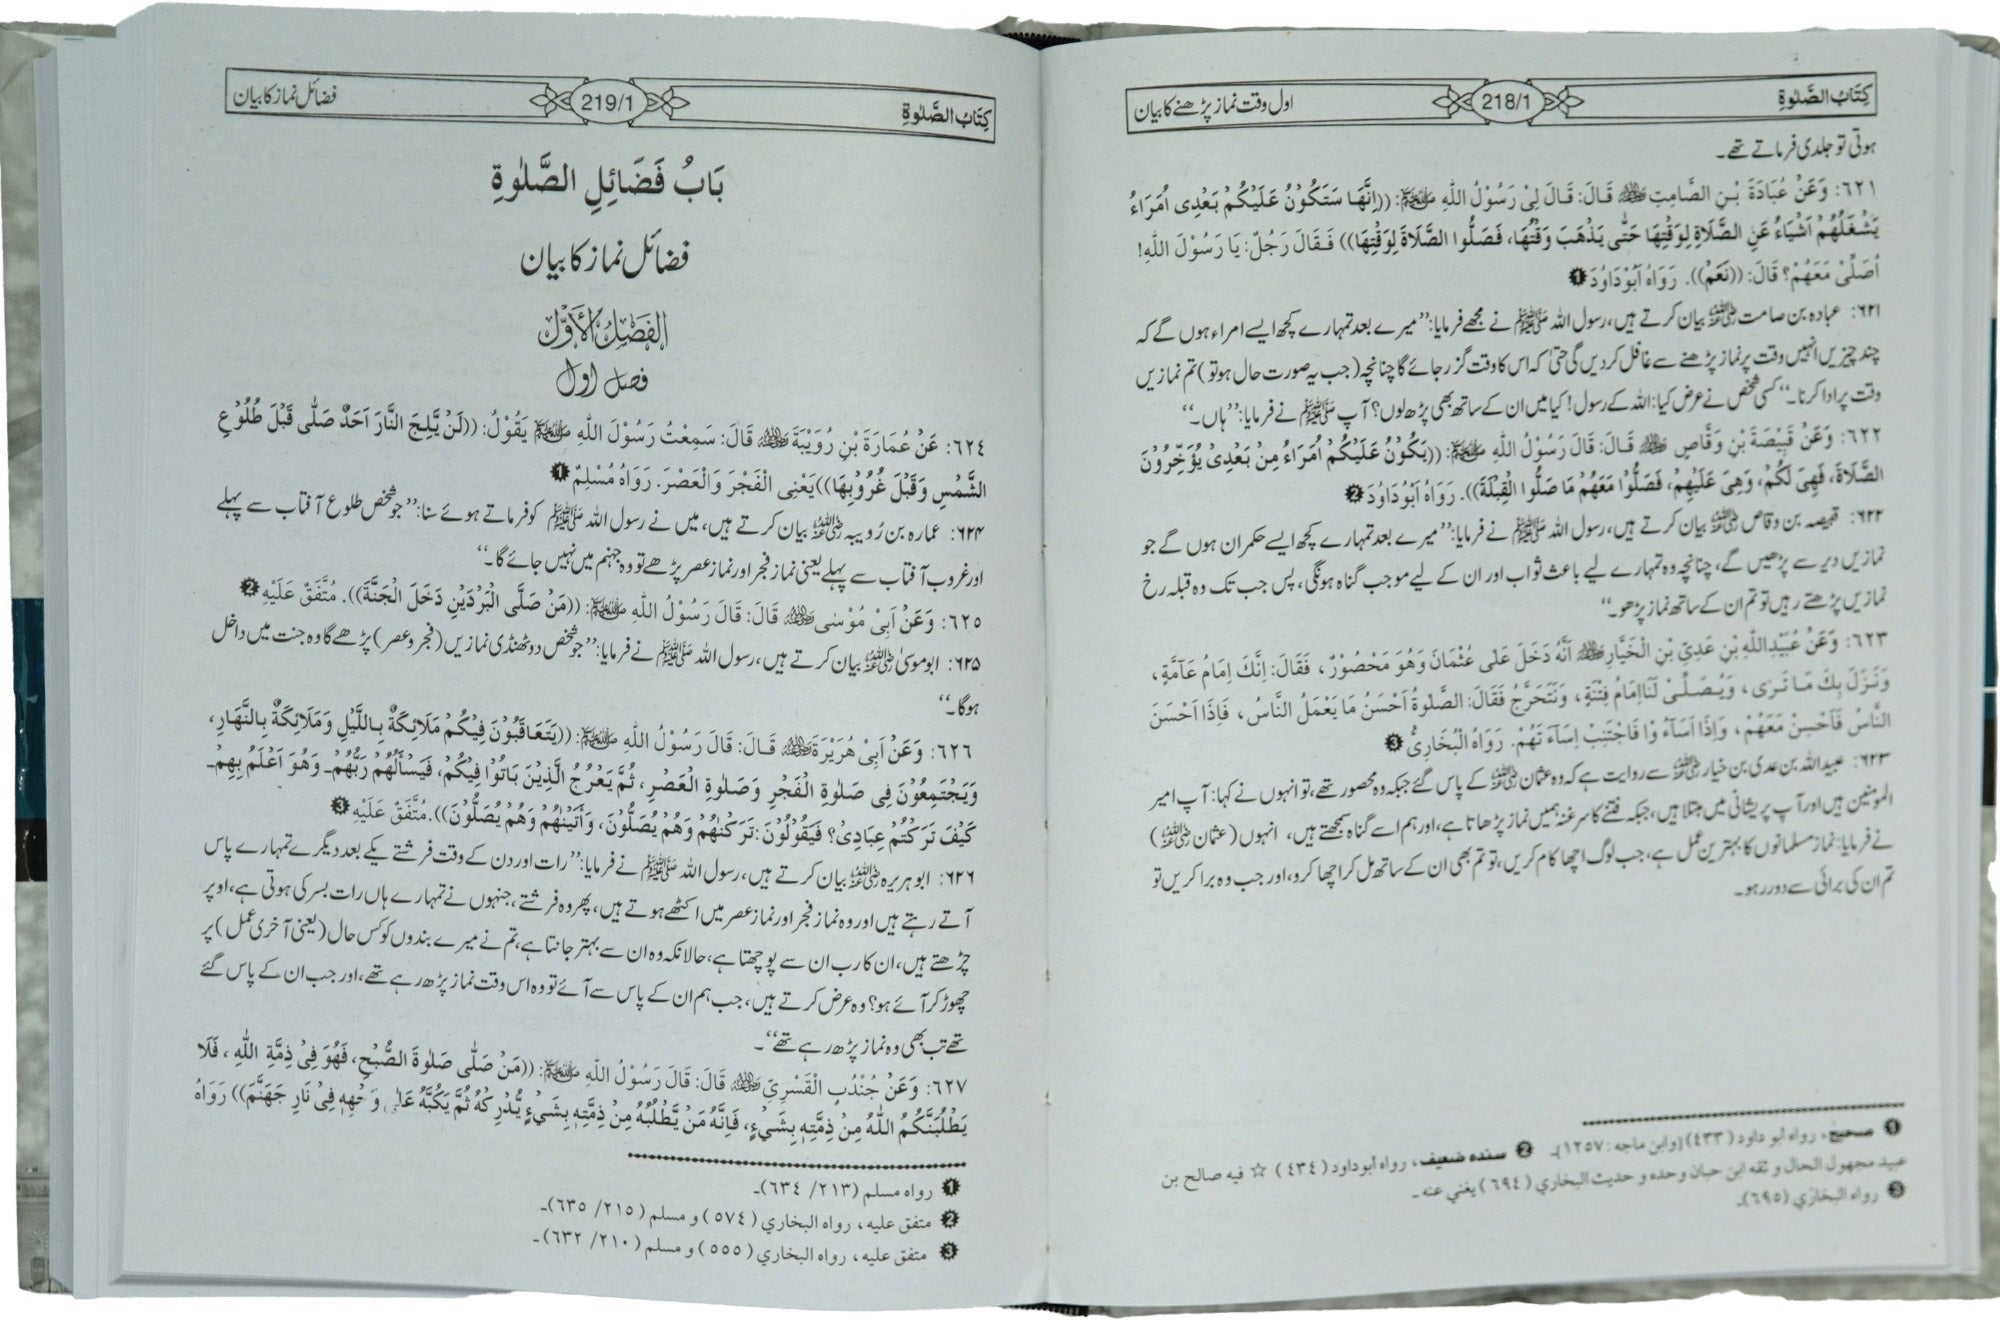 كِتَابُ الصَّلٰوةِ 218/1 اول وقت نماز پڑھنے کا بیان
ہوتی تو جلدی فرماتے تھے۔
٦٢١: وَعَنْ عُبَادَةَ بْنِ الصَّامِتِ ؓ قَالَ: قَالَ لِیْ رَسُوْلُ اللهِ ﷺ: ((اِنَّهَا سَتَكُوْنُ عَلَيْكُمْ بَعْدِى اُمَرَاءُ
يَشْغَلُهُمْ اَشْيَاءُ عَنِ الصَّلَاةِ لِوَقْتِهَا حَتّٰى يَذْهَبَ وَقْتُهَا، فَصَلُّوا الصَّلَاةَ لِوَقْتِهَا)) فَقَالَ رَجُلٌ: يَا رَسُوْلَ اللهِ!
اُصَلِّىْ مَعَهُمْ؟ قَالَ: ((نَعَمْ)). رَوَاهُ اَبُوْدَاوُدَ ❶
۶۲۱: عبادہ بن صامت ؓ بیان کرتے ہیں، رسول اللہ ﷺ نے مجھے فرمایا: ’’میرے بعد تمہارے کچھ ایسے امراء ہوں گے کہ
چند چیزیں انہیں وقت پر نماز پڑھنے سے غافل کر دیں گی حتیٰ کہ اس کا وقت گزر جائے گا چنانچہ (جب یہ صورت حال ہو تو) تم نمازیں
وقت پر ادا کرنا۔‘‘ کسی شخص نے عرض کیا: اللہ کے رسول! کیا میں ان کے ساتھ بھی پڑھ لوں؟ آپ ﷺ نے فرمایا: ’’ہاں۔‘‘
٦٢٢: وَعَنْ قَبِيْصَةَ بْنِ وَقَّاصٍ ؓ قَالَ: قَالَ رَسُوْلُ اللهِ ﷺ: ((يَكُوْنُ عَلَيْكُمْ اُمَرَاءُ مِنْ بَعْدِىْ يُؤَخِّرُوْنَ
الصَّلَاةَ، فَهِىَ لَكُمْ، وَهِىَ عَلَيْهِمْ، فَصَلُّوْا مَعَهُمْ مَا صَلُّوا الْقِبْلَةَ)). رَوَاهُ اَبُوْدَاوُدَ ❷
۶۲۲: قبیصہ بن وقاص ؓ بیان کرتے ہیں، رسول اللہ ﷺ نے فرمایا: ’’میرے بعد تمہارے کچھ ایسے حکمران ہوں گے جو
نمازیں دیر سے پڑھیں گے، چنانچہ وہ تمہارے لیے باعث ثواب اور ان کے لیے موجب گناہ ہونگی، پس جب تک وہ قبلہ رخ
نمازیں پڑھتے رہیں تو تم ان کے ساتھ نماز پڑھو۔‘‘
٦٢٣: وَعَنْ عُبَيْدِاللهِ بْنِ عَدِيِّ بْنِ الْخَيَّارِ ؓ اَنَّهُ دَخَلَ عَلٰى عُثْمَانَ وَهُوَ مَحْصُوْرٌ، فَقَالَ: اِنَّكَ اِمَامُ عَامَّةٍ،
وَنَزَلَ بِكَ مَا تَرٰى، وَيُصَلِّىْ لَنَا اِمَامُ فِتْنَةٍ، وَنَتَحَرَّجُ فَقَالَ: الصَّلٰوةُ اَحْسَنُ مَا يَعْمَلُ النَّاسُ، فَاِذَا اَحْسَنَ
النَّاسُ فَاَحْسِنْ مَعَهُمْ، وَاِذَا اَسَآءُ وْا فَاجْتَنِبْ اِسَآءَتَهُمْ. رَوَاهُ الْبُخَارِيُّ ❸
۶۲۳: عبیداللہ بن عدی بن خیار ؓ سے روایت ہے کہ وہ عثمان ؓ کے پاس گئے جبکہ وہ محصور تھے، تو انہوں نے کہا: آپ امیر
المومنین ہیں اور آپ پریشانی میں مبتلا ہیں، جبکہ فتنے کا سرغنہ ہمیں نماز پڑھاتا ہے، اور ہم اسے گناہ سمجھتے ہیں، انہوں (عثمان ؓ)
نے فرمایا: نماز مسلمانوں کا بہترین عمل ہے، جب لوگ اچھا کام کریں، تو تم بھی ان کے ساتھ مل کر اچھا کرو، اور جب وہ برا کریں تو
تم ان کی برائی سے دور رہو۔
❶ صحيح، رواه أبو داود (٤٣٣) [وابن ماجه: ١٢٥٧]۔ ❷ سنده ضعيف، رواه أبو داود (٤٣٤) ☆ فيه صالح بن
عبيد مجهول الحال و ثقه ابن حبان وحده و حديث البخاري (٦٩٤) يغني عنه۔
❸ رواه البخاري (٦٩٥)۔
كِتَابُ الصَّلٰوةِ 219/1 فضائل نماز کا بیان
بَابُ فَضَائِلِ الصَّلٰوةِ
فضائل نماز کا بیان
الفَصْلُ الأَوَّلُ
فصل اول
٦٢٤: عَنْ عُمَارَةَ بْنِ رُوَيْبَةَ ؓ قَالَ: سَمِعْتُ رَسُوْلَ اللهِ ﷺ يَقُوْلُ: ((لَنْ يَّلِجَ النَّارَ اَحَدٌ صَلّٰى قَبْلَ طُلُوْعِ
الشَّمْسِ وَقَبْلَ غُرُوْبِهَا)) يَعْنِى الْفَجْرَ وَالْعَصْرَ. رَوَاهُ مُسْلِمٌ ❶
۶۲۴: عمارہ بن رُویبہ ؓ بیان کرتے ہیں، میں نے رسول اللہ ﷺ کو فرماتے ہوئے سنا: ’’جو شخص طلوع آفتاب سے پہلے
اور غروب آفتاب سے پہلے یعنی نماز فجر اور نماز عصر پڑھے تو وہ جہنم میں نہیں جائے گا۔‘‘
٦٢٥: وَعَنْ اَبِىْ مُوْسٰى ؓ قَالَ: قَالَ رَسُوْلُ اللهِ ﷺ: ((مَنْ صَلَّى الْبَرْدَيْنِ دَخَلَ الْجَنَّةَ)). مُتَّفَقٌ عَلَيْهِ ❷
۶۲۵: ابو موسیٰ ؓ بیان کرتے ہیں، رسول اللہ ﷺ نے فرمایا: ’’جو شخص دو ٹھنڈی نمازیں (فجر و عصر) پڑھے گا وہ جنت میں داخل
ہوگا۔‘‘
٦٢٦: وَعَنْ اَبِىْ هُرَيْرَةَ ؓ قَالَ: قَالَ رَسُوْلُ اللهِ ﷺ: ((يَتَعَاقَبُوْنَ فِيْكُمْ مَلَائِكَةٌ بِاللَّيْلِ وَمَلَائِكَةٌ بِالنَّهَارِ،
وَيَجْتَمِعُوْنَ فِى صَلٰوةِ الْفَجْرِ وَصَلٰوةِ الْعَصْرِ، ثُمَّ يَعْرُجُ الَّذِيْنَ بَاتُوْا فِيْكُمْ، فَيَسْأَلُهُمْ رَبُّهُمْ۔ وَهُوَ اَعْلَمُ بِهِمْ۔
كَيْفَ تَرَكْتُمْ عِبَادِىْ؟ فَيَقُوْلُوْنَ: تَرَكْنٰهُمْ وَهُمْ يُصَلُّوْنَ، وَأَتَيْنٰهُمْ وَهُمْ يُصَلُّوْنَ)). مُتَّفَقٌ عَلَيْهِ ❸
۶۲۶: ابو ہریرہ ؓ بیان کرتے ہیں، رسول اللہ ﷺ نے فرمایا: ’’رات اور دن کے وقت فرشتے یکے بعد دیگرے تمہارے پاس
آتے رہتے ہیں اور وہ نماز فجر اور نماز عصر میں اکٹھے ہوتے ہیں، پھر وہ فرشتے، جنہوں نے تمہارے ہاں رات بسر کی ہوتی ہے، اوپر
چڑھتے ہیں، ان کا رب ان سے پوچھتا ہے، حالانکہ وہ ان سے بہتر جانتا ہے، تم نے میرے بندوں کو کس حال (یعنی آخری عمل) پر
چھوڑ کر آئے ہو؟ وہ عرض کرتے ہیں، جب ہم ان کے پاس سے آئے تو وہ اس وقت نماز پڑھ رہے تھے، اور جب ان کے پاس گئے
تھے تب بھی وہ نماز پڑھ رہے تھے‘‘۔
٦٢٧: وَعَنْ جُنْدُبٍ الْقَسْرِيِّ ؓ قَالَ: قَالَ رَسُوْلُ اللهِ ﷺ: ((مَنْ صَلّٰى صَلٰوةَ الصُّبْحِ، فَهُوَ فِىْ ذِمَّةِ اللهِ، فَلَا
يَطْلُبَنَّكُمُ اللهُ مِنْ ذِمَّتِهٖ بِشَىْءٍ، فَاِنَّهُ مَنْ يَّطْلُبْهُ مِنْ ذِمَّتِهٖ بِشَىْءٍ يُّدْرِكْهُ ثُمَّ يَكُبَّهُ عَلٰى وَجْهِهٖ فِىْ نَارِ جَهَنَّمَ)) رَوَاهُ
❶ رواه مسلم (٢١٣/ ٦٣٤)۔
❷ متفق عليه، رواه البخاري (٥٧٤) و مسلم (٢١٥/ ٦٣٥)۔
❸ متفق عليه، رواه البخاري (٥٥٥) و مسلم (٢١٠/ ٦٣٢)۔